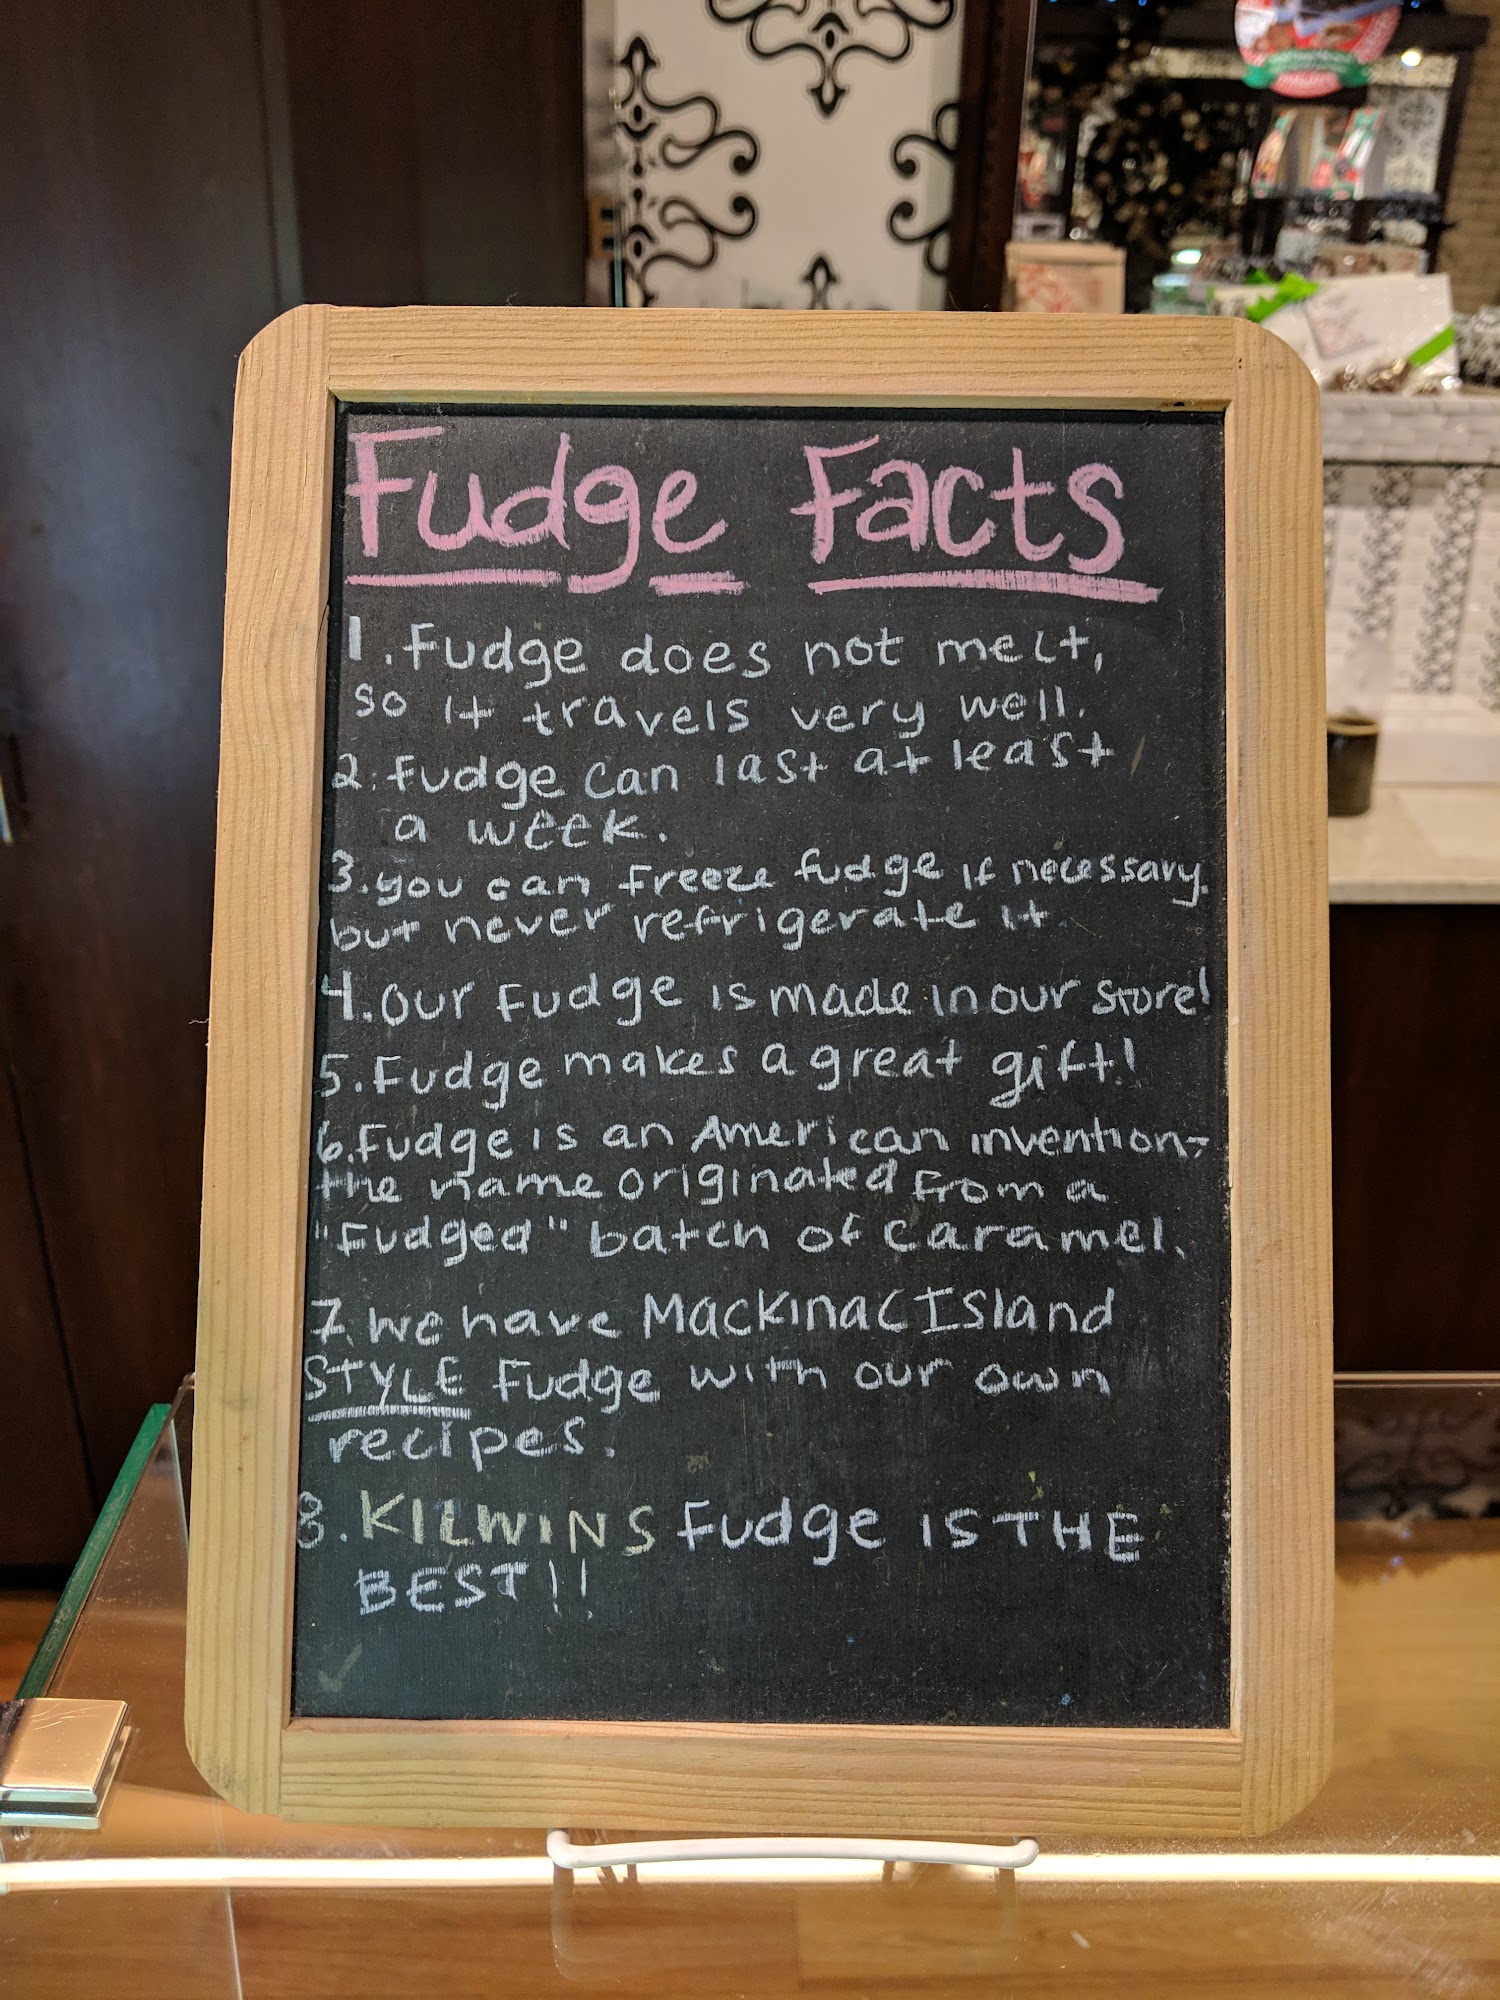 Fudge Facts
1. Fudge does not melt,
so it travels very well.
2. Fudge can last at least
a week.
3. you can freeze fudge if necessary.
but never refrigerate it
4. Our Fudge is made in our store!
5. Fudge makes a great gift!
6. Fudge is an American invention-
the name originated from a
"Fudged" batch of caramel.
7. We have Mackinac Island
STYLE Fudge with our own
recipes.
8. KILWINS Fudge IS THE
BEST!!